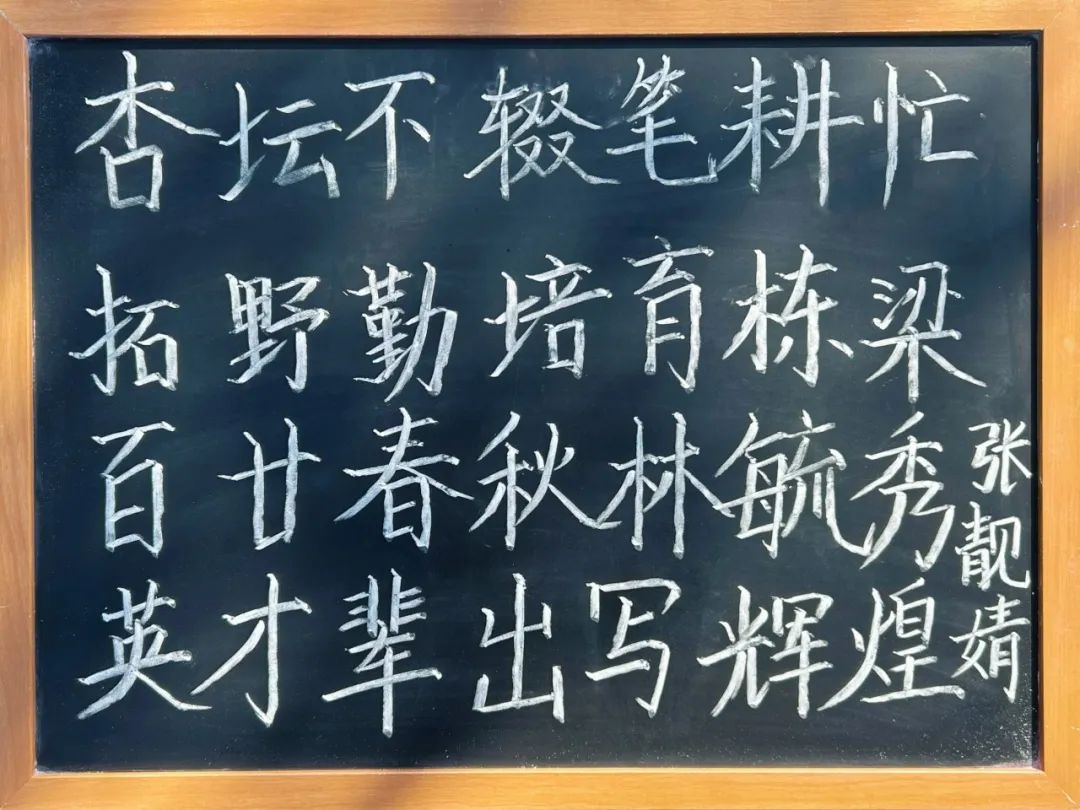 杏坛不辍笔耕忙
拓野勤培育栋梁
百廿春秋林毓秀
英才辈出写辉煌
张靓婧